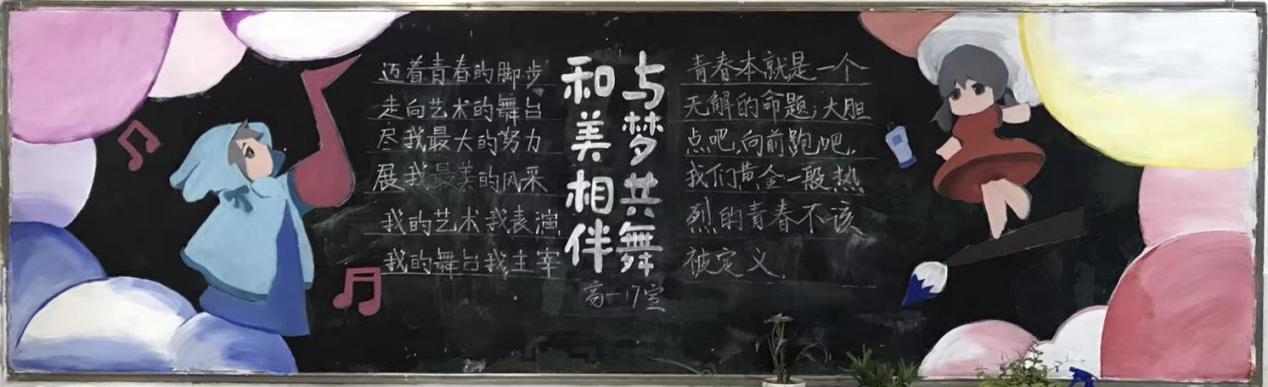 迈着青春的脚步
走向艺术的舞台
尽我最大的努力
展我最美的风采
我的艺术我表演
我的舞台我主宰
与梦共舞
和美相伴
高一17宣
青春本就是一个
无解的命题,大胆
点吧,向前跑吧,
我们黄金一般热
烈的青春不该
被定义.